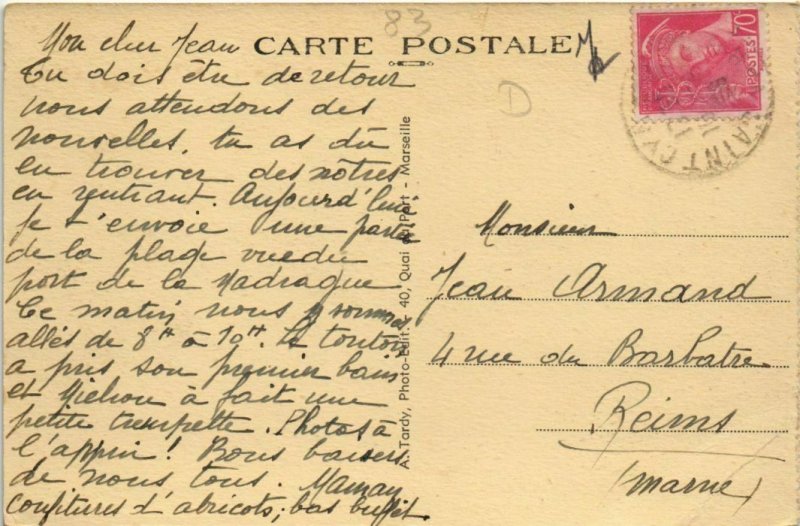 83
Mon cher Jean
CARTE POSTALE
Tu dois être de retour
nous attendons des
nouvelles, tu as dû
en trouver des nôtres
en rentrant. Aujourd'hui
je t'envoie une partie
de la plage vue du
port de la Madrague
Ce matin nous y sommes
allés de 8H à 10H. Le tonton
a pris son premier bain
et Michou à fait une
petite trempette. Photos à
l'appui ! Bons baisers
de nous tous. Maman
confitures d'abricots, bas buffet
D
A. Tardy, Photo-Edit. 40, Quai du Port - Marseille
70c
POSTES
SAINT CY
Monsieur
Jean Armand
4 rue du Barbatre
Reims
(Marne)